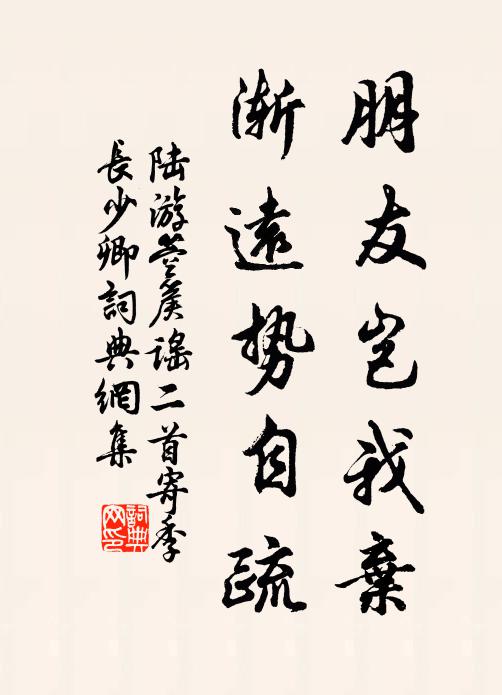 朋友豈我棄
漸遠勢自疏
陸游箜篌謠二首寄季
長少卿詞典網集
詞典
网印